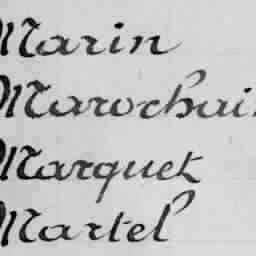 Marin
Marochai
Marquet
Martel